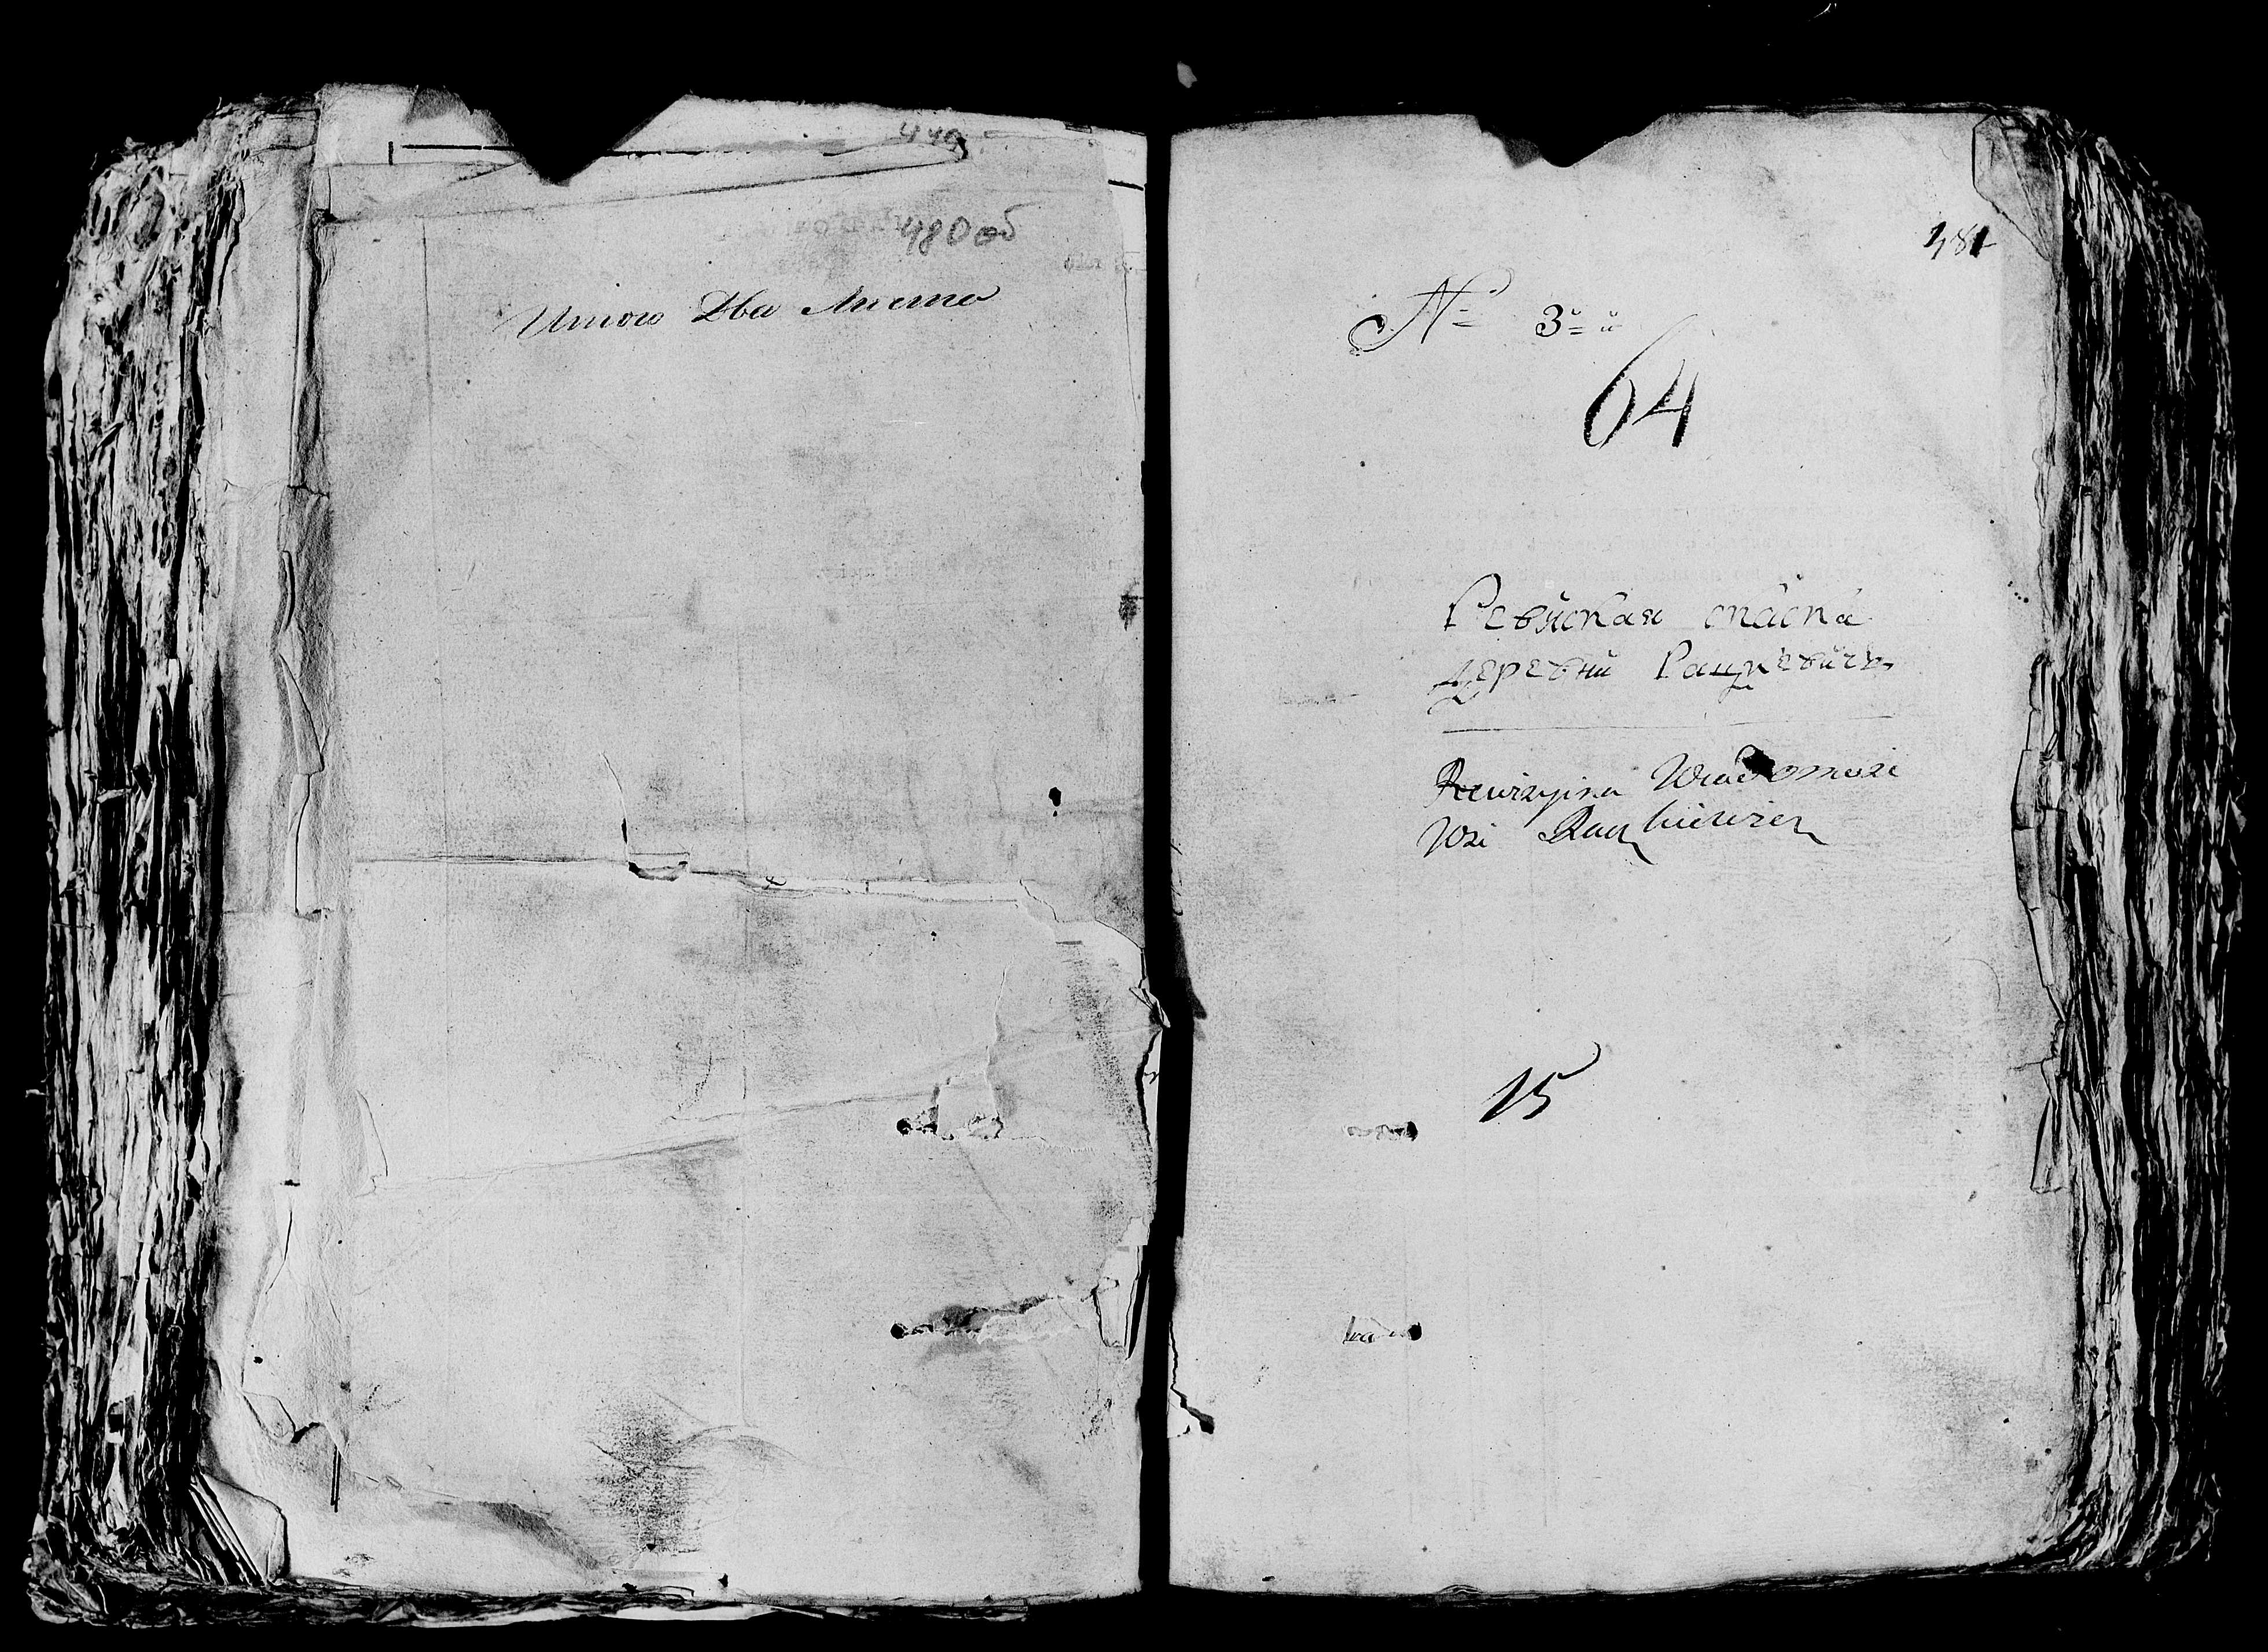 449
480 об
Итого два листа
481
№ 3й
64
Ревиская сказка
деревни Рацкевичъ
Rewizyina Wiadomosc
Wsi Rackiewicz
15